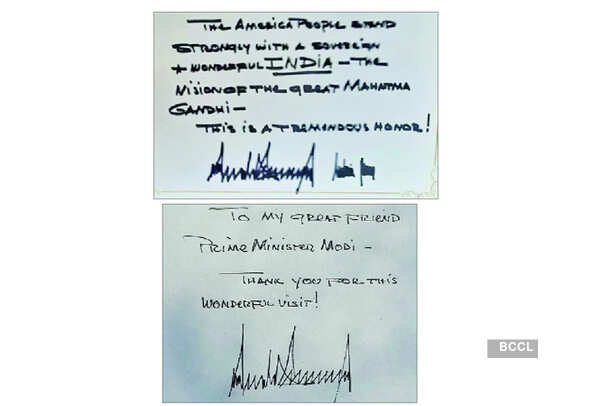 THE AMERICA PEOPLE STAND
STRONGLY WITH A SOVEREIGN
+ WONDERFUL INDIA – THE
VISION OF THE GREAT MAHATMA
GANDHI –
THIS IS A TREMENDOUS HONOR!
TO MY GREAT FRIEND
PRIME MINISTER MODI –
THANK YOU FOR THIS
WONDERFUL VISIT!
BCCL